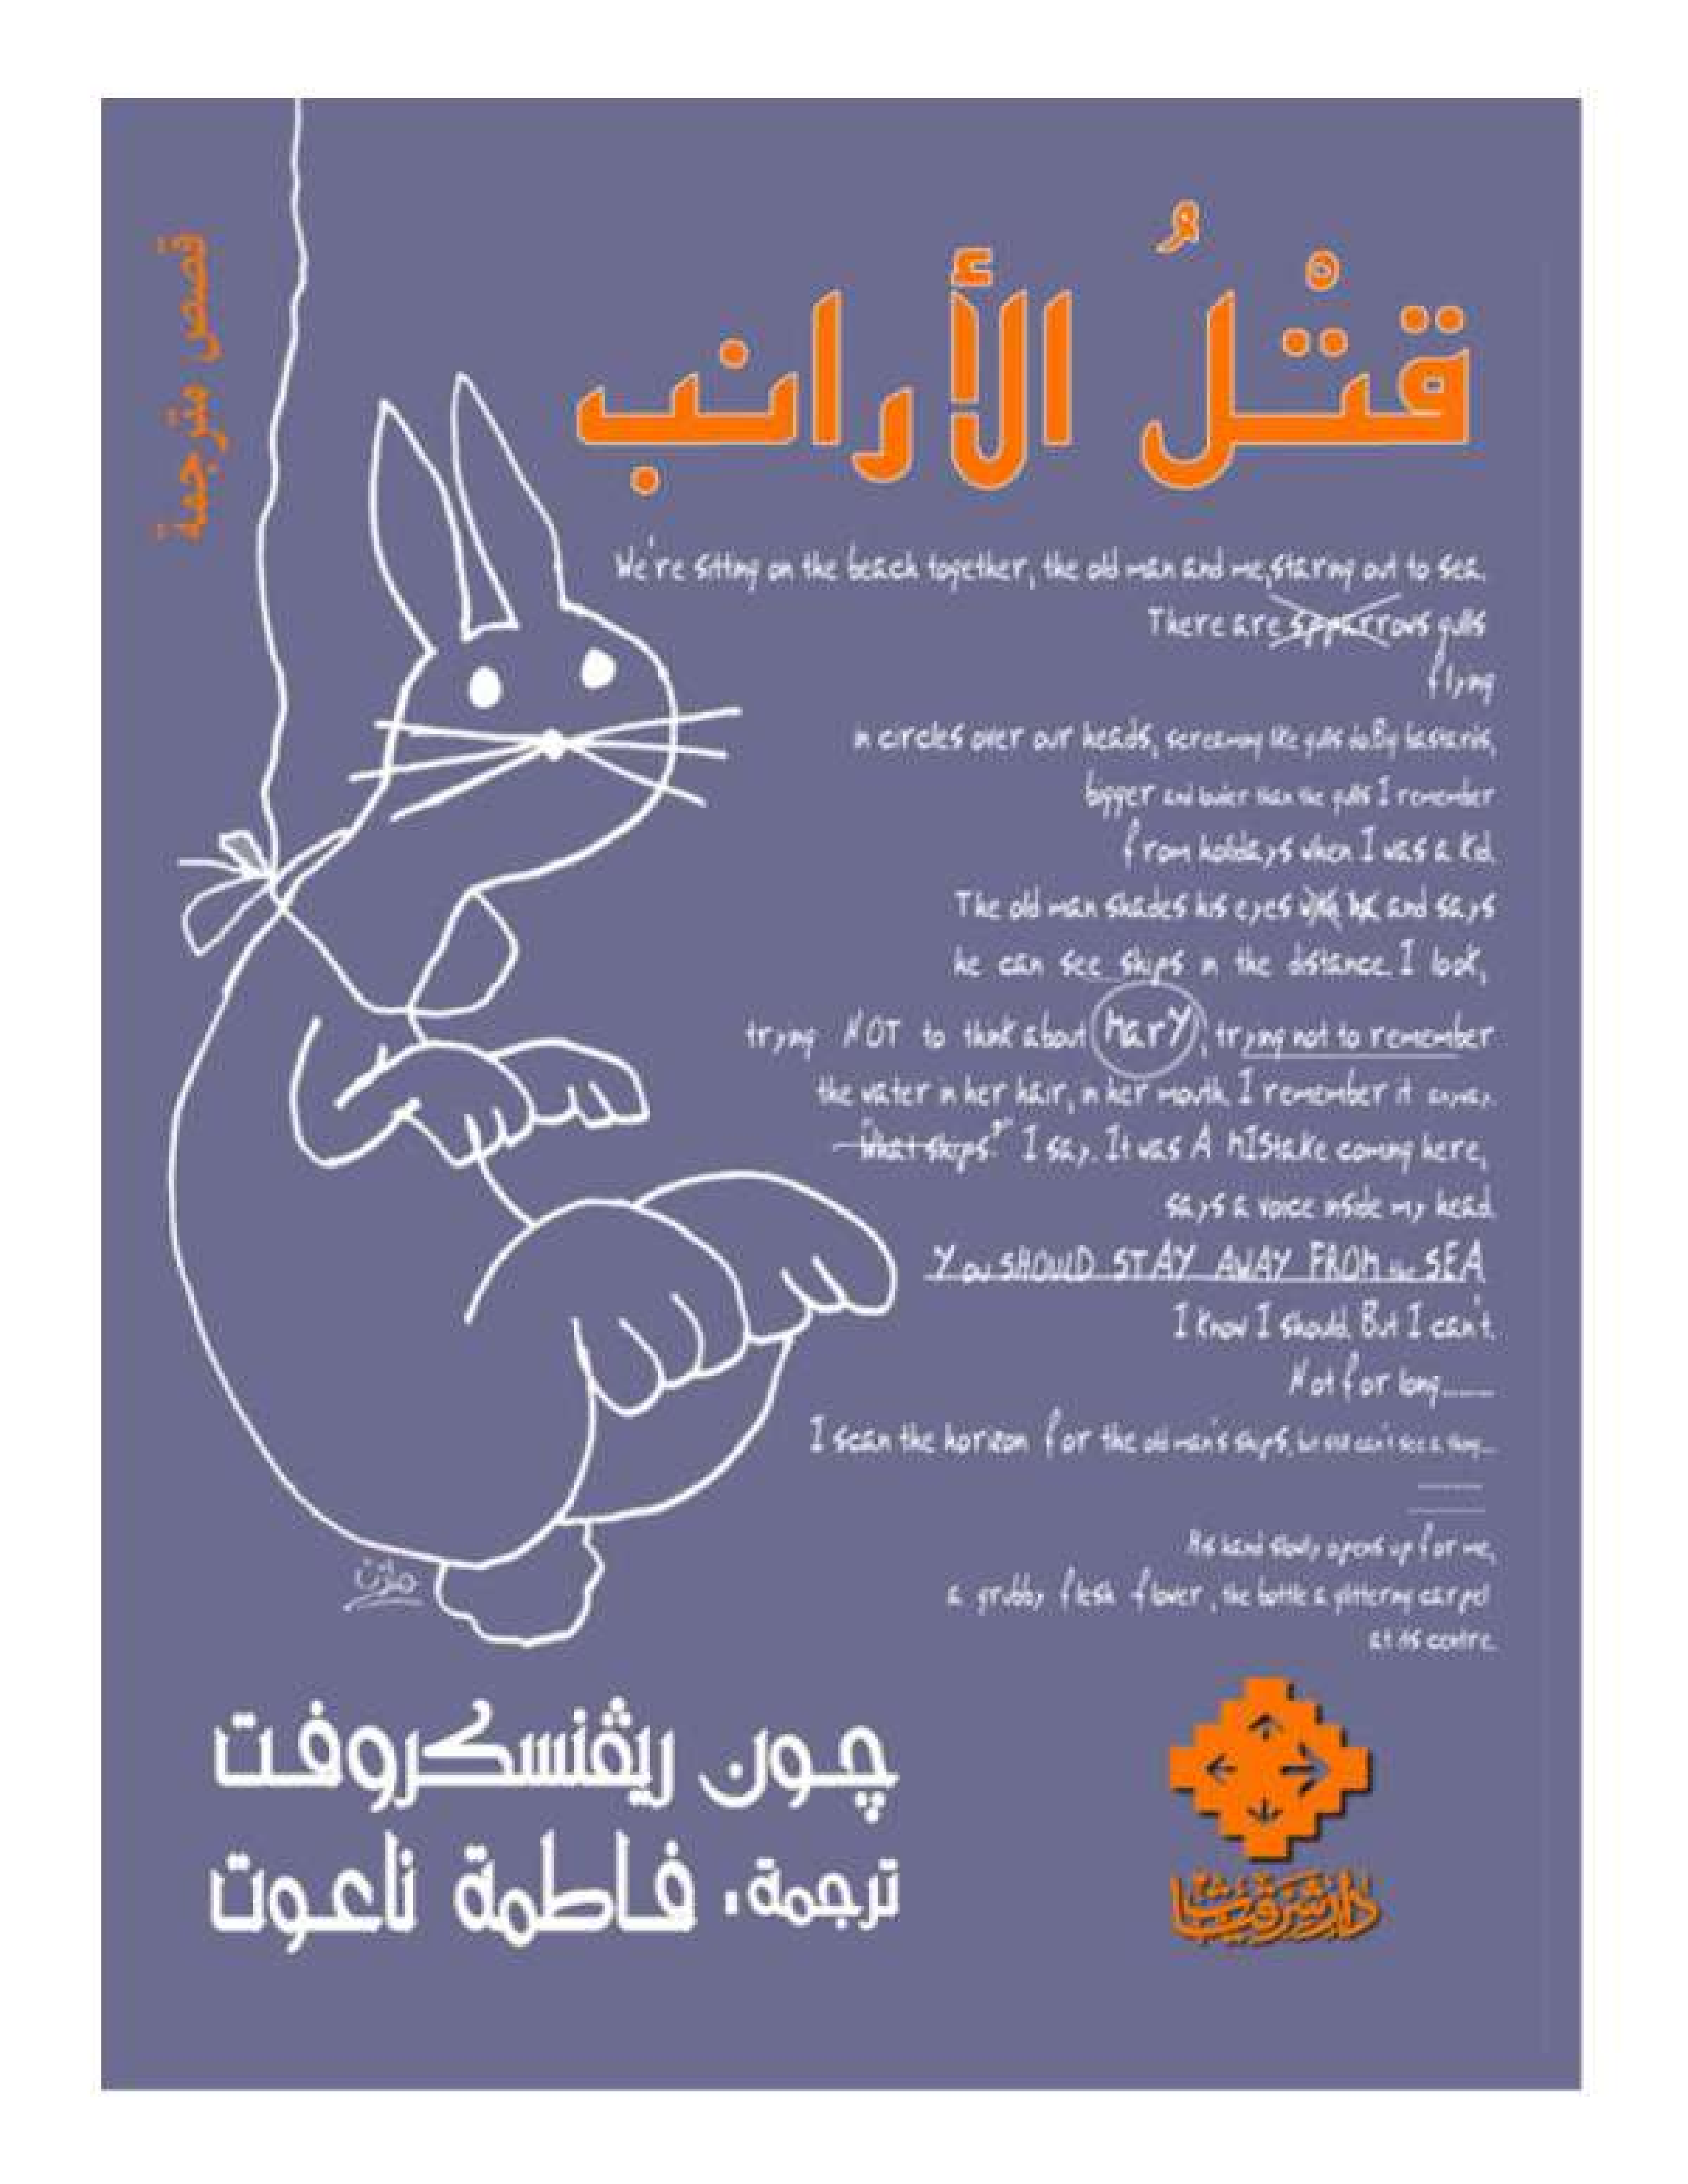 قصص مترجمة
قتْلُ الأرانب
We're sitting on the beach together, the old man and me, staring out to sea.
There are spparrows gulls
flying
in circles over our heads, screaming like gulls do. Big bastards,
bigger and louder than the gulls I remember
from holidays when I was a kid.
The old man shades his eyes with his and says
he can see ships in the distance. I look,
trying NOT to think about Mary, trying not to remember
the water in her hair, in her mouth. I remember it anyway.
"What ships?" I say. It was A MIStake coming here,
says a voice inside my head.
You SHOULD STAY AWAY FROM the SEA
I know I should. But I can't.
Not for long........
I scan the horizon for the old man's ships, but still can't see a thing...
His hand slowly opens up for me,
a grubby flesh flower, the bottle a glittering carpel
at its centre.
مازن
چون ريڤنسكروفت
ترجمة: فاطمة ناعوت
دار شرقيات